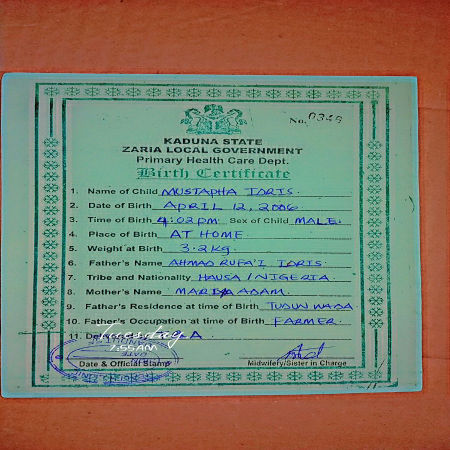 No. 0349
KADUNA STATE
ZARIA LOCAL GOVERNMENT
Primary Health Care Dept.
Birth Certificate
1. Name of Child MUSTAPHA IDRIS.
2. Date of Birth APRIL 12, 2006
3. Time of Birth 4:02pm Sex of Child MALE.
4. Place of Birth AT HOME
5. Weight at Birth 3.2kg.
6. Father's Name AHMAD RUFA'I IDRIS.
7. Tribe and Nationality HAUSA / NIGERIA.
8. Mother's Name MARIYA ADAM.
9. Father's Residence at time of Birth TUDUN WADA
10. Father's Occupation at time of Birth FARMER.
11. Delivered
7:55AM
Date & Official Stamp Midwifery/Sister in Charge